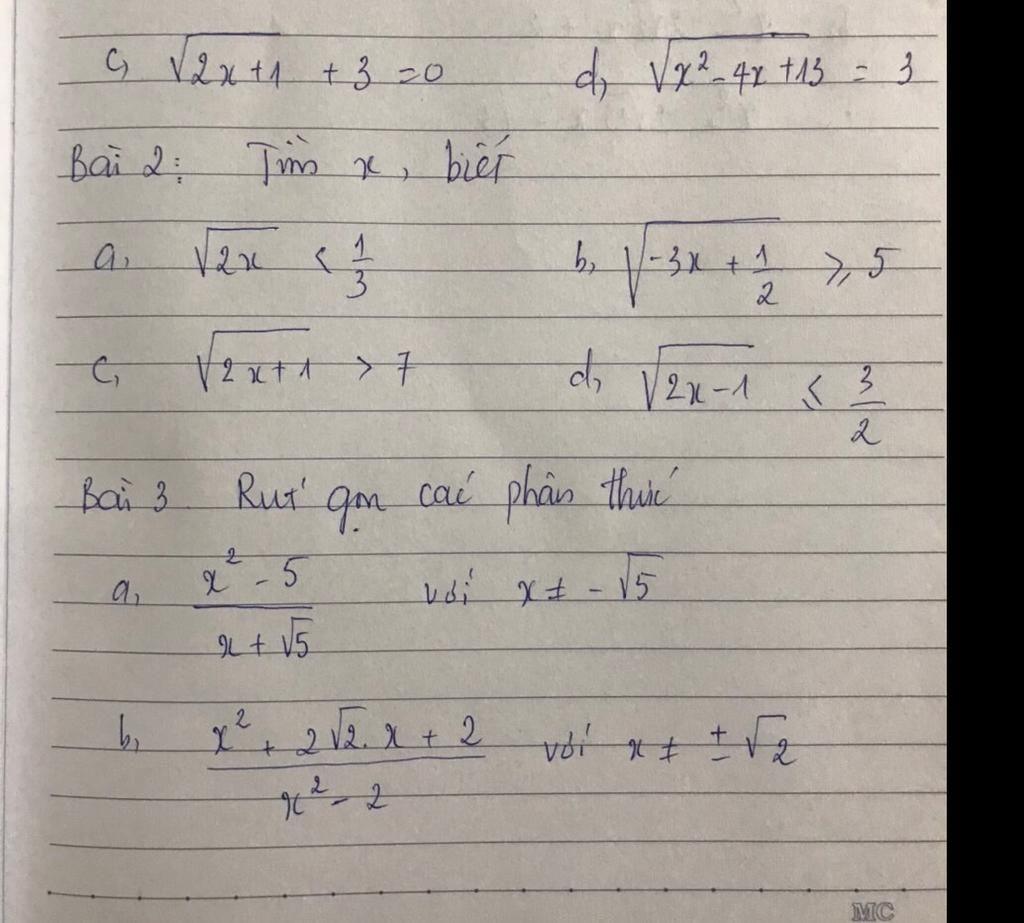 c, √(2x+1) + 3 = 0 d, √(x² - 4x + 13) = 3
Bài 2: Tìm x, biết
a, √(2x) < 1/3 b, √(-3x + 1/2) ≥ 5
c, √(2x+1) > 7 d, √(2x-1) ≤ 3/2
Bài 3 Rút gọn các phân thức
a, (x² - 5)/(x + √5) với x ≠ -√5
b, (x² + 2√2. x + 2)/(x² - 2) với x ≠ ±√2
MC